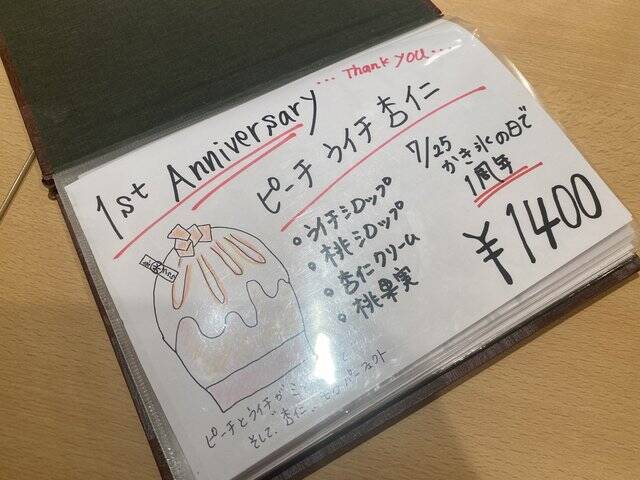 ...Thank You...
1st Anniversary
ピーチライチ杏仁
7/25
かき氷の日で
1周年
・ライチシロップ
・桃シロップ
・杏仁クリーム
・桃果実
¥1400
ピーチとライチが
そして、杏仁